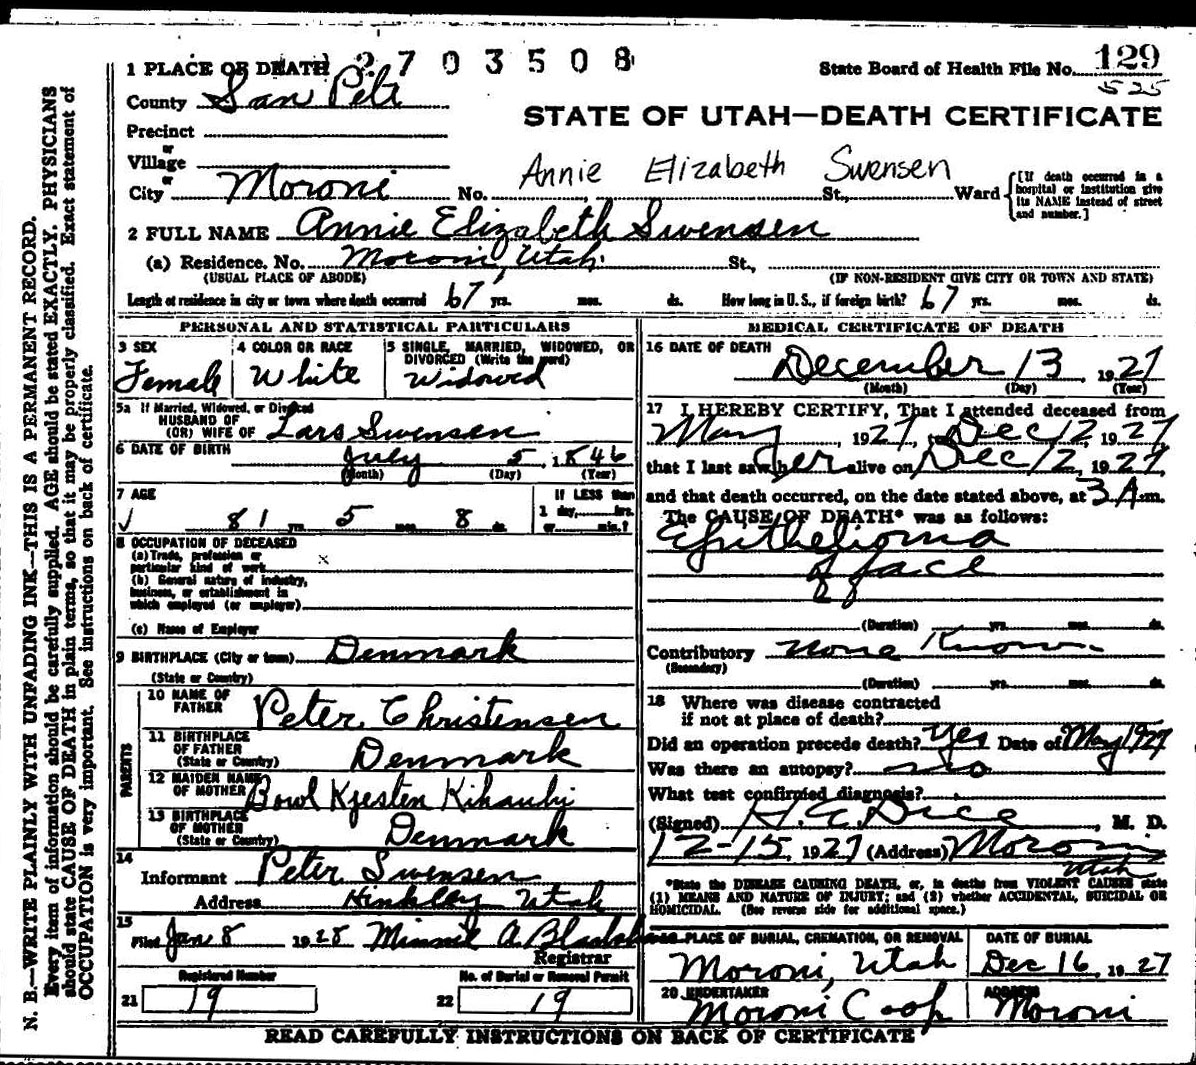 N. B.—WRITE PLAINLY WITH UNFADING INK—THIS IS A PERMANENT RECORD.
Every item of information should be carefully supplied. AGE should be stated EXACTLY. PHYSICIANS
should state CAUSE OF DEATH in plain terms, so that it may be properly classified. Exact statement of
OCCUPATION is very important. See instructions on back of certificate.
2703508
1 PLACE OF DEATH
State Board of Health File No. 129
525
County San Pete
STATE OF UTAH—DEATH CERTIFICATE
Precinct
or
Village
or
Annie Elizabeth Swensen
City Moroni No. St., Ward
[If death occurred in a
hospital or institution give
its NAME instead of street
and number.]
2 FULL NAME Annie Elizabeth Swensen
(a) Residence. No. Moroni, Utah St.,
(USUAL PLACE OF ABODE) (IF NON-RESIDENT GIVE CITY OR TOWN AND STATE)
Length of residence in city or town where death occurred 67 yrs. mos. ds. How long in U. S., if foreign birth? 67 yrs. mos. ds.
PERSONAL AND STATISTICAL PARTICULARS
3 SEX
Female
4 COLOR OR RACE
White
5 SINGLE, MARRIED, WIDOWED, OR
DIVORCED (Write the word)
Widowed
5a If Married, Widowed, or Divorced
HUSBAND OF
(OR) WIFE OF Lars Swensen
6 DATE OF BIRTH July 5, 1846
(Month) (Day) (Year)
7 AGE
81 yrs. 5 mos. 8 ds.
If LESS than
1 day, hrs.
or min.?
8 OCCUPATION OF DECEASED
(a) Trade, profession or
particular kind of work x
(b) General nature of industry,
business, or establishment in
which employed (or employer)
(c) Name of Employer
9 BIRTHPLACE (City or town) Denmark
(State or Country)
PARENTS
10 NAME OF
FATHER Peter Christensen
11 BIRTHPLACE
OF FATHER
(State or Country) Denmark
12 MAIDEN NAME
OF MOTHER Bowl Kjesten
13 BIRTHPLACE
OF MOTHER
(State or Country) Denmark
14
Informant Peter Swensen
Address Hinkley Utah
15
Filed Jan 8 1928 Minnie A.
Registrar
Registered Number
21 19
No. of Burial or Removal Permit
22 19
MEDICAL CERTIFICATE OF DEATH
16 DATE OF DEATH
December 13, 1927
(Month) (Day) (Year)
17 I HEREBY CERTIFY, That I attended deceased from
May, 1927, to Dec 12, 1927
that I last saw her alive on Dec 12, 1927,
and that death occurred, on the date stated above, at 3 A m.
The CAUSE OF DEATH* was as follows:
Epithelioma
of face
(Duration) yrs. mos. ds.
Contributory None Known
(Secondary)
(Duration) yrs. mos. ds.
18 Where was disease contracted
if not at place of death?
Did an operation precede death? Yes Date of May 1927
Was there an autopsy? no
What test confirmed diagnosis?
(Signed) H. E. Dice, M. D.
12-15, 1927 (Address) Moroni
Utah
*State the DISEASE CAUSING DEATH, or, in deaths from VIOLENT CAUSES state
(1) MEANS AND NATURE OF INJURY; and (2) whether ACCIDENTAL, SUICIDAL OR
HOMICIDAL. (See reverse side for additional space.)
PLACE OF BURIAL, CREMATION, OR REMOVAL
Moroni, Utah
DATE OF BURIAL
Dec 16, 1927
20 UNDERTAKER
Moroni Coop
ADDRESS
Moroni
READ CAREFULLY INSTRUCTIONS ON BACK OF CERTIFICATE